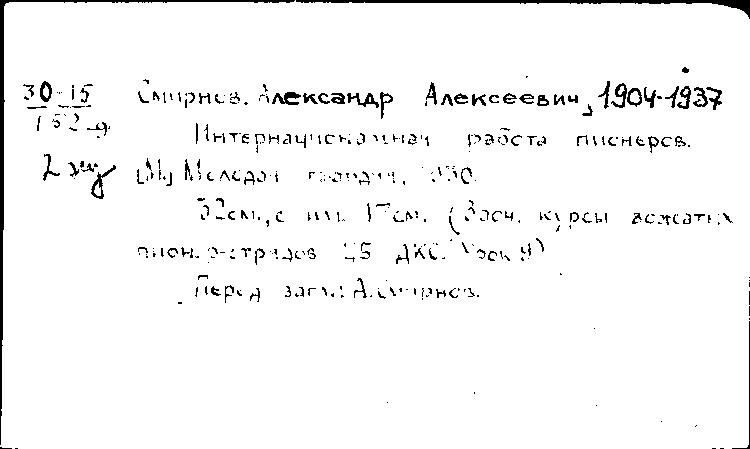 30-15 Смирнов, Александр Алексеевич, 1904-1937
152-д Интернациональная работа пионеров.
2 экз [М.] Молодая гвардия, 1930.
32см., с илл. 17см. (Заоч. курсы вожатых
пион. отрядов ЦБ ДКО. Урок 9)
Перед загл.: А.Смирнов.